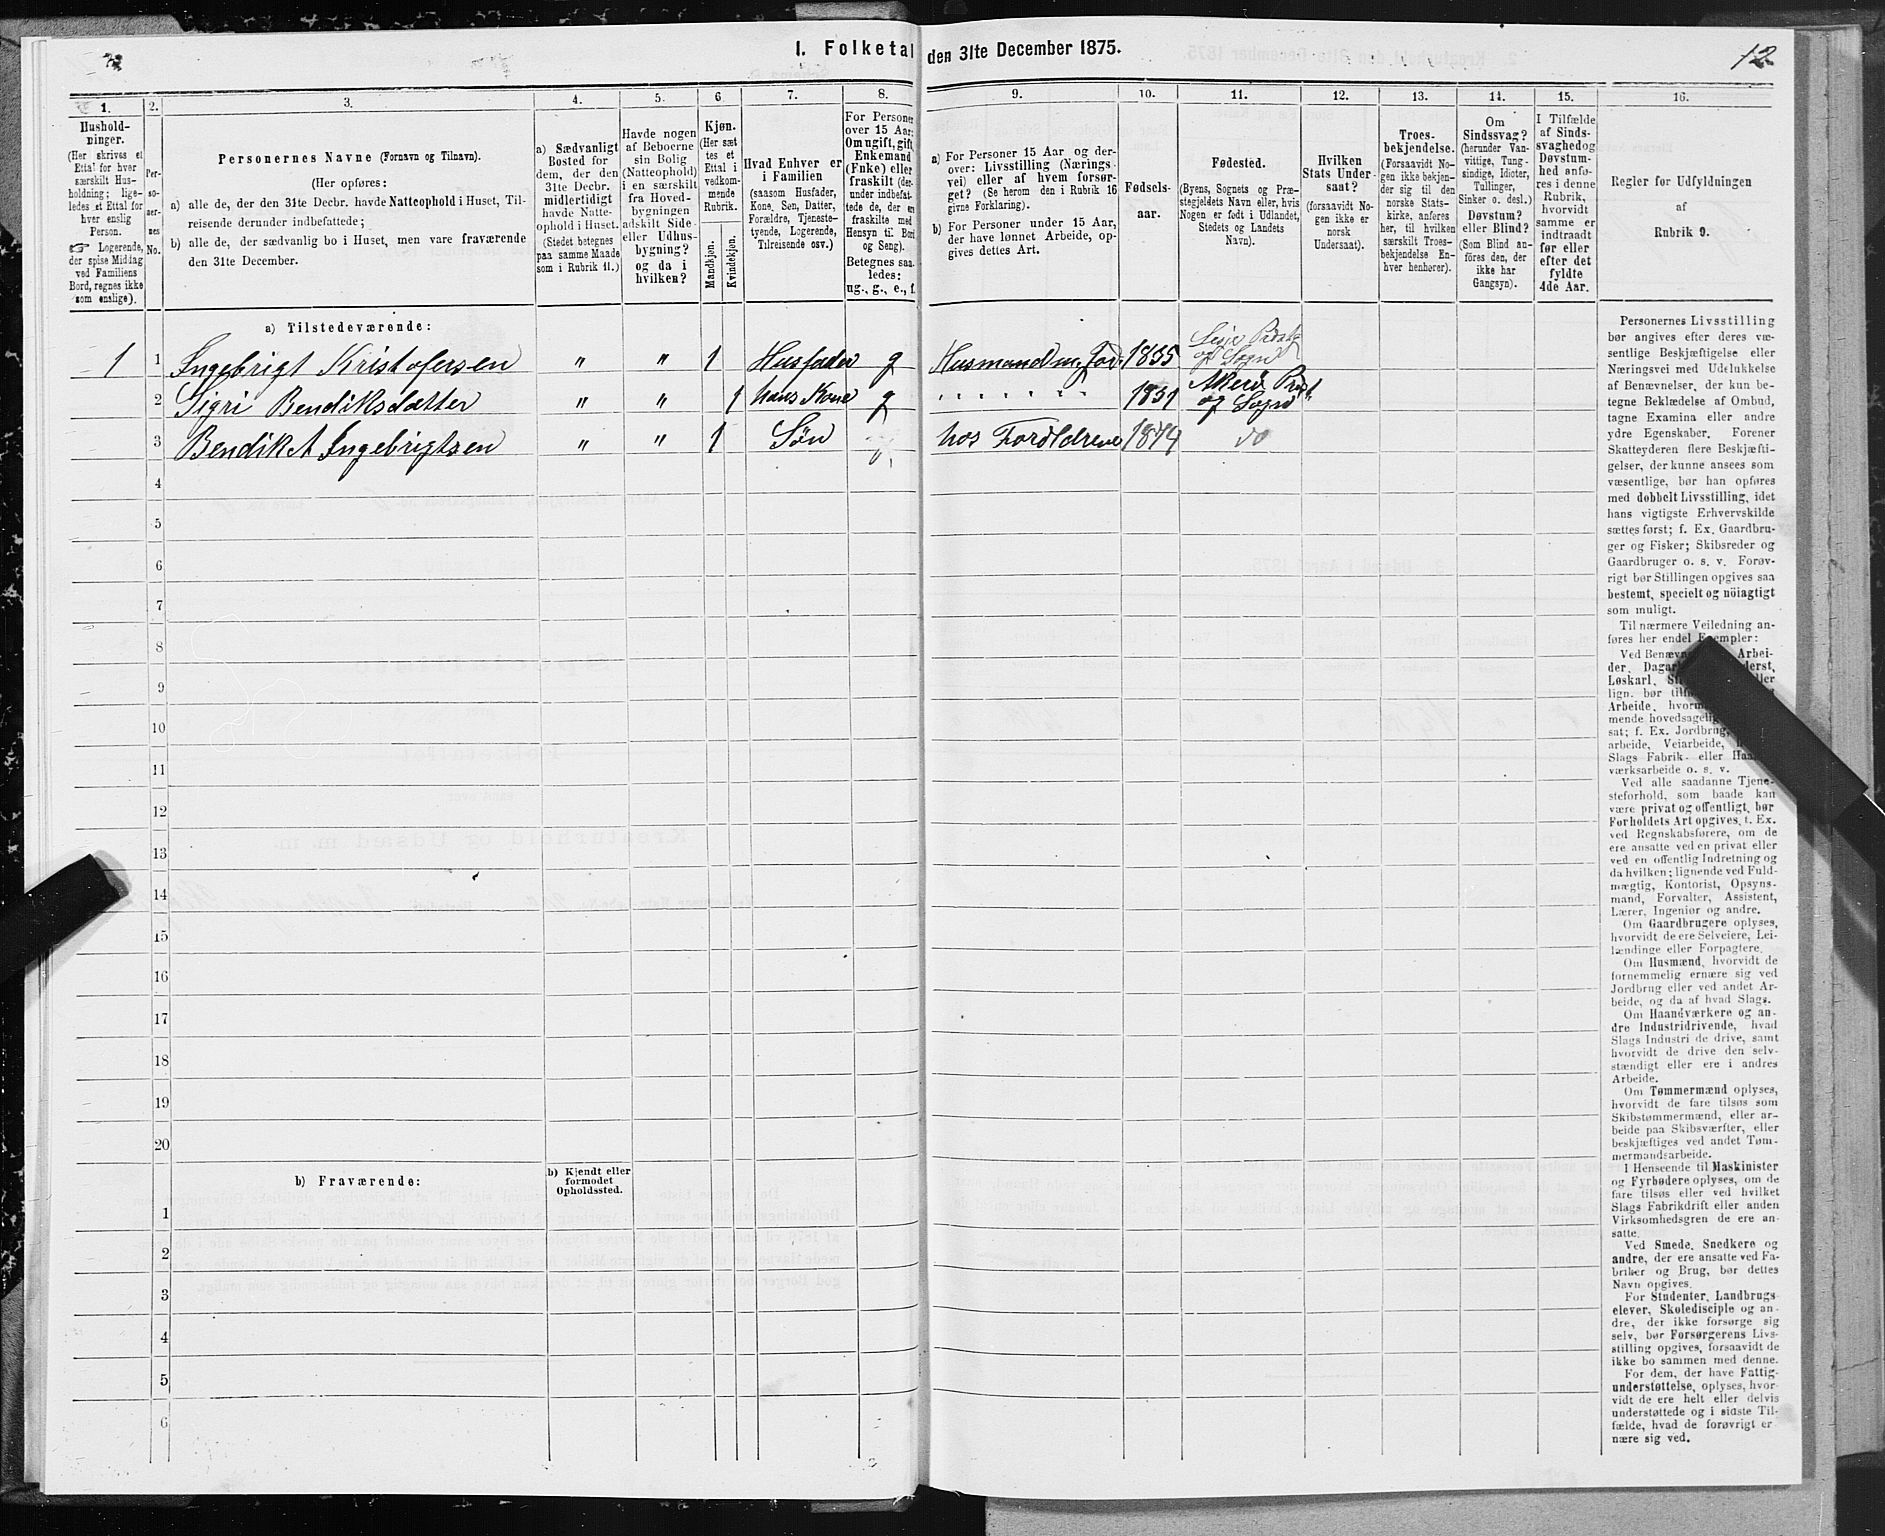 1. Folketal den 31te December 1875.
12
1. 2. 3. 4. 5. 6. 7. 8. 9. 10. 11. 12. 13. 14. 15. 16.
Hushold-
ninger.
(Her skrives et
Ettal for hver
særskilt Hus-
holdning; lige-
ledes et Ettal for
hver enslig
Person.
☞ Logerende,
der spise Middag
ved Familiens
Bord, regnes ikke
som enslige).
Per-
so-
ner-
nes
No.
Personernes Navne (Fornavn og Tilnavn).
(Her opføres:
a) alle de, der den 31te Decbr. havde Natteophold i Huset, Til-
reisende derunder indbefattede;
b) alle de, der sædvanlig bo i Huset, men vare fraværende
den 31te December.
a) Sædvanligt
Bosted for
dem, der den
31te Decbr.
midlertidigt
havde Natte-
ophold i Huset.
(Stedet betegnes
paa samme Maade
som i Rubrik 11.)
Havde nogen
af Beboerne
sin Bolig
(Natteophold)
i en særskilt
fra Hoved-
bygningen
adskilt Side-
eller Udhus-
bygning?
og da i
hvilken?
Kjøn.
(Her sæt
tes et
Ettal i
vedkom-
mende
Rubrik.
Mandkjøn.
Kvindekjøn.
Hvad Enhver er
i Familien
(saasom Husfader,
Kone, Søn, Datter,
Forældre, Tjeneste-
tyende, Logerende,
Tilreisende osv.)
For Personer
over 15 Aar:
Om ugift, gift,
Enkemand
(Enke) eller
fraskilt (der-
under indbefat-
tede de, der ere
fraskilte med
Hensyn til Bord
og Seng).
Betegnes saa-
ledes:
ug., g., e., f.
a) For Personer 15 Aar og der-
over: Livsstilling (Nærings-
vei) eller af hvem forsør-
get? (Se herom den i Rubrik 16
givne Forklaring).
b) For Personer under 15 Aar,
der have lønnet Arbeide, op-
gives dettes Art.
Fødsels-
aar.
Fødested.
(Byens, Sognets og Præ-
stegjeldets Navn eller, hvis
Nogen er født i Udlandet,
Stedets og Landets
Navn).
Hvilken
Stats Under-
saat?
(forsaavidt No-
gen ikke er
norsk
Undersaat).
Troes-
bekjendelse.
(Forsaavidt No-
gen ikke bekjen-
der sig til den
norske Stats-
kirke, anføres
her, til hvilken
særskilt Troes-
bekjendelse En-
hver henhører).
Om
Sindssvag?
(herunder Van-
vittige, Tung-
sindige, Idioter,
Tullinger,
Sinker o. desl.)
Døvstum?
eller Blind?
(Som Blind an-
føres den, der
ikke har
Gangsyn).
I Tilfælde
af Sinds-
svaghed og
Døvstum-
hed anfø-
res i denne
Rubrik,
hvorvidt
samme er
indtraadt
før eller
efter det
fyldte
4de Aar.
Regler for Udfyldningen
af
Rubrik 9.
a) Tilstedeværende:
1 1 Ingebrigt Kristofersen " " 1 Husfader g Husmand m. Jord 1835 og Sogn
2 Sigri Bendiksdatter " " 1 hans Kone g " " " " " " 1831 Akerö Præst. og Sogn
3 Bendikt Ingebrigtsen " " 1 Søn hos Foreldrene 1874 do
4
5
6
7
8
9
10
11
12
13
14
15
16
17
18
19
20
b) Fraværende:
b) Kjendt eller
formodet
Opholdssted.
1
2
3
4
5
6
Personernes Livsstilling
bør angives efter deres væ-
sentlige Beskjæftigelse eller
Næringsvei med Udelukkelse
af Benævnelser, der kun be-
tegne Beklædelse af Ombud,
tagne Examina eller andre
ydre Egenskaber. Forener
Skatteyderen flere Beskjæfti-
gelser, der kunne ansees som
væsentlige, bør han opføres
med dobbelt Livsstilling, idet
hans vigtigste Erhvervskilde
sættes først; f. Ex. Gaardbru-
ger og Fisker; Skibsreder og
Gaardbruger o. s. v. Forøv-
rigt bør Stillingen opgives saa
bestemt, specielt og nøiagtigt
som muligt.
Til nærmere Veiledning an-
føres her endel Exempler:
Ved Benævn Arbei-
der, Dag
Løskarl,
lign. bør
Arbeide, hvor
mende hovedsagelig
sat; f. Ex. Jordbrug,
arbeide, Veiarbeide,
Slags Fabrik- eller
værksarbeide o. s. v.
Ved alle saadanne Tjene-
steforhold, som baade kan
være privat og offentligt, bør
Forholdets Art opgives, f. Ex.
ved Regnskabsførere, om de
ere ansatte ved en privat eller
ved en offentlig Indretning og
da hvilken; lignende ved Fuld-
mægtig, Kontorist, Opsyns-
mand, Forvalter, Assistent,
Lærer, Ingeniør og andre.
Om Gaardbrugere oplyses,
hvorvidt de ere Selveiere, Lei-
lændinge eller Forpagtere.
Om Husmænd, hvorvidt de
fornemmelig ernære sig ved
Jordbrug eller ved andet Ar-
beide, og da af hvad Slags.
Om Haandværkere og an-
dre Industridrivende, hvad
Slags Industri de drive, samt
hvorvidt de drive den selv-
stændigt eller ere i andres
Arbeide.
Om Tømmermænd oplyses,
hvorvidt de fare tilsøs som
Skibstømmermænd, eller ar-
beide paa Skibsværfter, eller
beskjæftiges ved andet Tøm-
mermandsarbeide.
I Henseende til Maskinister
og Fyrbødere oplyses, om de
fare tilsøs eller ved hvilket
Slags Fabrikdrift eller anden
Virksomhedsgren de ere an-
satte.
Ved Smede, Snedkere og
andre, der ere ansatte ved Fa-
briker og Brug, bør dettes
Navn opgives.
For Studenter, Landbrugs-
elever, Skoledisciple og an-
dre, der ikke forsørge sig
selv, bør Forsørgerens Livs-
stilling opgives, forsaavidt de
ikke bo sammen med denne.
For dem, der have Fattig-
understøttelse, oplyses, hvor-
vidt de ere helt eller delvis
understøttede og i sidste Til-
fælde, hvad de forøvrigt er-
nære sig ved.